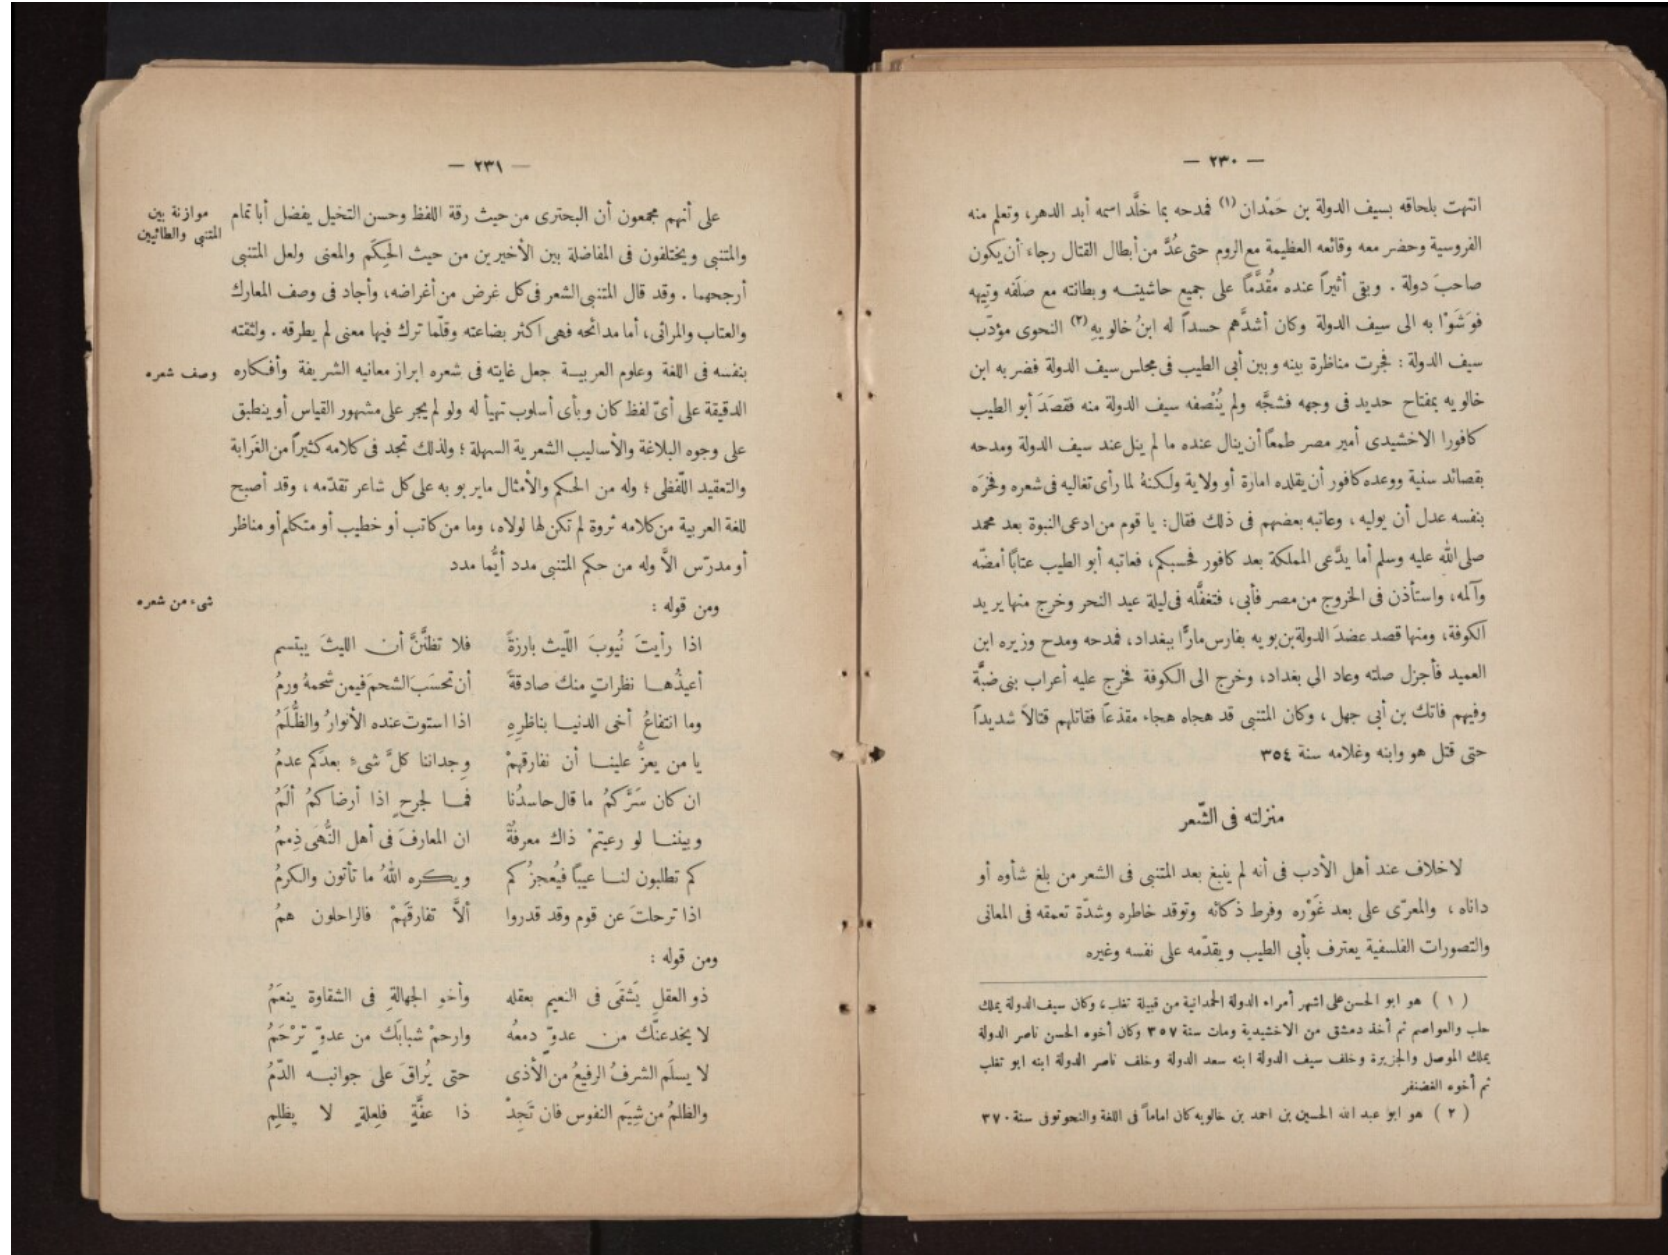 — ٢٣٠ —
انتهت بلحاقه بسيف الدولة بن حَمْدان (١) فمدحه بما خلَّد اسمه أبد الدهر، وتعلم منه
الفروسية وحضر معه وقائعه العظيمة مع الروم حتى عُدَّ من أبطال القتال رجاء أن يكون
صاحبَ دولة . وبقى أثيراً عنده مُقدَّمًا على جميع حاشيتـه وبطانته مع صَلَفه وتِيهه
فوَشَوْا به الى سيف الدولة وكان أشدَّهم حسداً له ابنُ خالويهِ (٢) النحوى مؤدّب
سيف الدولة : فجرت مناظرة بينه وبين أبى الطيب فى مجلس سيف الدولة فضربه ابن
خالويه بمفتاح حديد فى وجهه فشجَّه ولم يُنْصفه سيف الدولة منه فقصَدَ أبو الطيب
كافورا الاخشيدى أمير مصر طمعاً أن ينال عنده ما لم ينل عند سيف الدولة ومدحه
بقصائد سنية ووعده كافور أن يقلده امارة أو ولاية ولكنهُ لما رأى تغاليه فى شعره وفخرَه
بنفسه عدل أن يوليه ، وعاتبه بعضهم فى ذلك فقال: يا قوم من ادعى النبوة بعد محمد
صلى الله عليه وسلم أما يدَّعى المملكة بعد كافور فحسبكم، فعاتبه أبو الطيب عتابًا أمضّه
وآلمه، واستأذن فى الخروج من مصر فأبى، فتغفَّله فى ليلة عيد النحر وخرج منها يريد
الكوفة، ومنها قصد عضدَ الدولة بن بويه بفارس مارًّا ببغداد، فمدحه ومدح وزيره ابن
العميد فأجزل صلته وعاد الى بغداد، وخرج الى الكوفة فخرج عليه أعراب بنى ضبَّة
وفيهم فاتك بن أبى جهل ، وكان المتنبى قد هجاه هجاء مقذعاً فقاتلهم قتالاً شديداً
حتى قتل هو وابنه وغلامه سنة ٣٥٤
منزلته فى الشّعر
لاخلاف عند أهل الأدب فى أنه لم ينبغ بعد المتنبى فى الشعر من بلغ شأوه أو
داناه ، والمعرّى على بعد غَوْره وفرط ذكائه وتوقد خاطره وشدّة تعمقه فى المعانى
والتصورات الفلسفية يعترف بأبى الطيب ويقدّمه على نفسه وغيره
( ١ ) هو ابو الحسن على اشهر أمراء الدولة الحمدانية من قبيلة تغلب، وكان سيف الدولة يملك
حلب والعواصم ثم أخذ دمشق من الاخشيدية ومات سنة ٣٥٧ وكان أخوه الحسن ناصر الدولة
يملك الموصل والجزيرة وخلف سيف الدولة ابنه سعد الدولة وخلف ناصر الدولة ابنه ابو تغلب
ثم أخوه الغضنفر
( ٢ ) هو ابو عبد الله الحسين بن احمد بن خالويه كان اماماً فى اللغة والنحو توفى سنة ٣٧٠
— ٢٣١ —
موازنة بين
المتنبى والطائيين
على أنهم مجمعون أن البحترى من حيث رقة اللفظ وحسن التخيل يفضل أبا تمام
والمتنبى ويختلفون فى المفاضلة بين الأخيرين من حيث الحِكَم والمعنى ولعل المتنبى
أرجحهما . وقد قال المتنبى الشعر فى كل غرض من أغراضه، وأجاد فى وصف المعارك
والعتاب والمراثى، أما مدائحه فهى اكثر بضاعته وقلّما ترك فيها معنى لم يطرقه . ولثقته
وصف شعره
بنفسه فى اللغة وعلوم العربيـة جعل غايته فى شعره ابراز معانيه الشريفة وأفكاره
الدقيقة على أىّ لفظ كان وبأى أسلوب تهيأ له ولو لم يجر على مشهور القياس أو ينطبق
على وجوه البلاغة والأساليب الشعرية السهلة ؛ ولذلك تجد فى كلامه كثيراً من الغَرابة
والتعقيد اللّفظى ؛ وله من الحكم والأمثال ماير بو به على كل شاعر تقدّمه ، وقد أصبح
للغة العربية من كلامه ثروة لم تكن لها لولاه، وما من كاتب أو خطيب أو متكلم أو مناظر
أو مدرّس الاَّ وله من حكم المتنبى مدد أيُّما مدد
شىء من شعره
ومن قوله :
اذا رأيتَ نُيوبَ اللّيث بارزةً فلا تظنَّنَّ أن الليثَ يبتسم
أعيذُهـا نظراتٍ منك صادقةً أن تحسَبَ الشحمَ فيمن شحمهُ ورمُ
وما انتفاعُ أخى الدنيـا بناظرِهِ اذا استوت عنده الأنوارُ والظُّلَمُ
يا من يعزُّ علينـا أن نفارقهمْ وِجداننا كلَّ شىءٍ بعدَكم عدمُ
ان كان سَرَّكمُ ما قال حاسدُنا فمـا لجرحٍ اذا أرضاكمُ ألَمُ
وبيننـا لو رعيتمْ ذاك معرفةٌ ان المعارفَ فى أهل النُّهَى ذِممُ
كم تطلبون لنـا عيبًا فيُعجزُكم ويكره اللهُ ما تأتون والكرمُ
اذا ترحلتَ عن قوم وقد قدروا ألاَّ تفارقَهمْ فالراحلون همُ
ومن قوله :
ذو العقلِ يَشقَى فى النعيم بعقله وأخو الجهالةِ فى الشقاوة ينعَمُ
لا يخدعنَّك من عدوٍّ دمعُه وارحمْ شبابَك من عدوٍّ تَرْحَمُ
لا يسلَم الشرفُ الرفيعُ من الأذى حتى يُراقَ على جوانبـه الدّمُ
والظلمُ من شِيَم النفوس فان تَجِدْ ذا عفَّةٍ فلِعلةٍ لا يظلِم